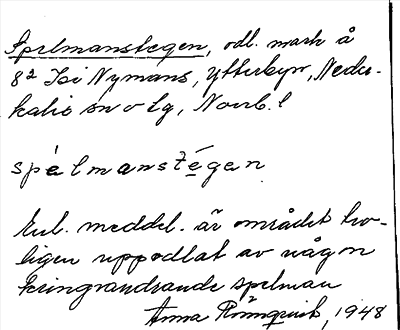 Spelmanstegen, odl. mark å
8² Isi Nymans, Ytterbyn, Neder-
kalix sn o tg, Norrb. l
spélmanstégen
Enl. meddel. är området tro-
ligen uppodlat av någon
kringvandrande spelman
Anna Rönnquist, 1948